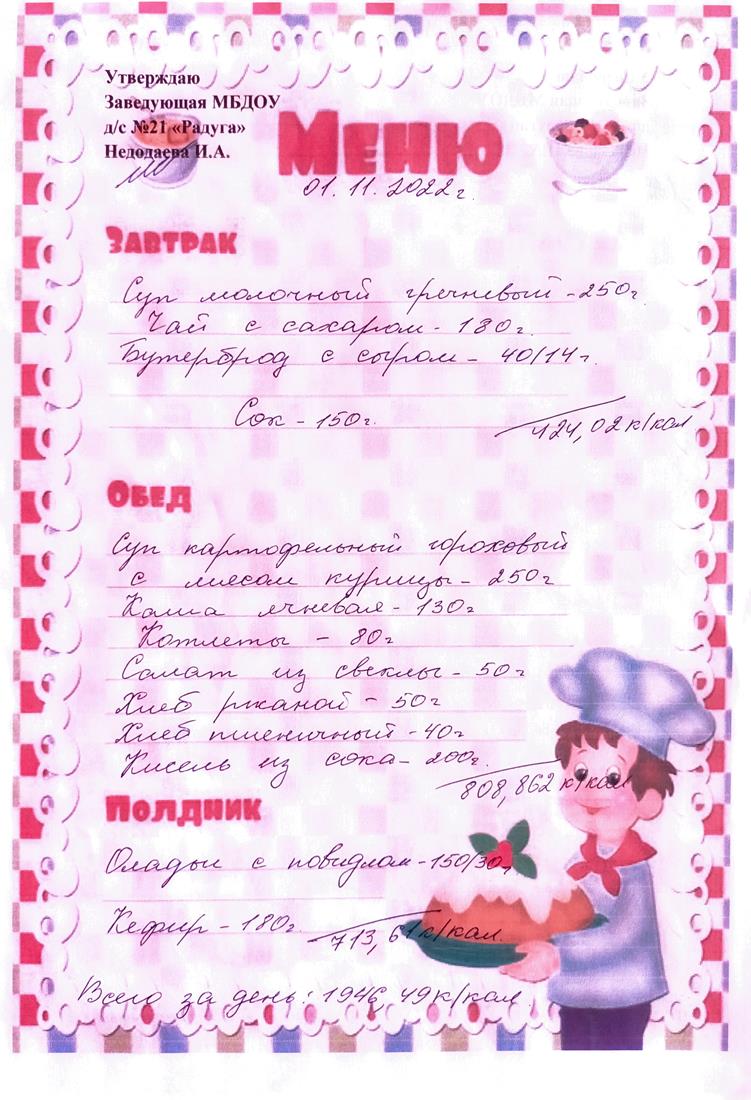 Утверждаю
Заведующая МБДОУ
д/с №21 «Радуга»
Недодаева И.А.
Меню
01.11.2022г.
Завтрак
Суп молочный гречневый - 250г.
Чай с сахаром - 180г.
Бутерброд с сыром - 40/14г.
Сок - 150г.
424,02 к/кал
Обед
Суп картофельный гороховый
с мясом курицы - 250г
Каша ячневая - 130г
Котлеты - 80г
Салат из свеклы - 50г
Хлеб ржаной - 50г
Хлеб пшеничный - 40г
Кисель из сока - 200г.
808,862 к/кал
Полдник
Оладьи с повидлом - 150/30г
Кефир - 180г.
713,61 к/кал.
Всего за день: 1946,49 к/кал